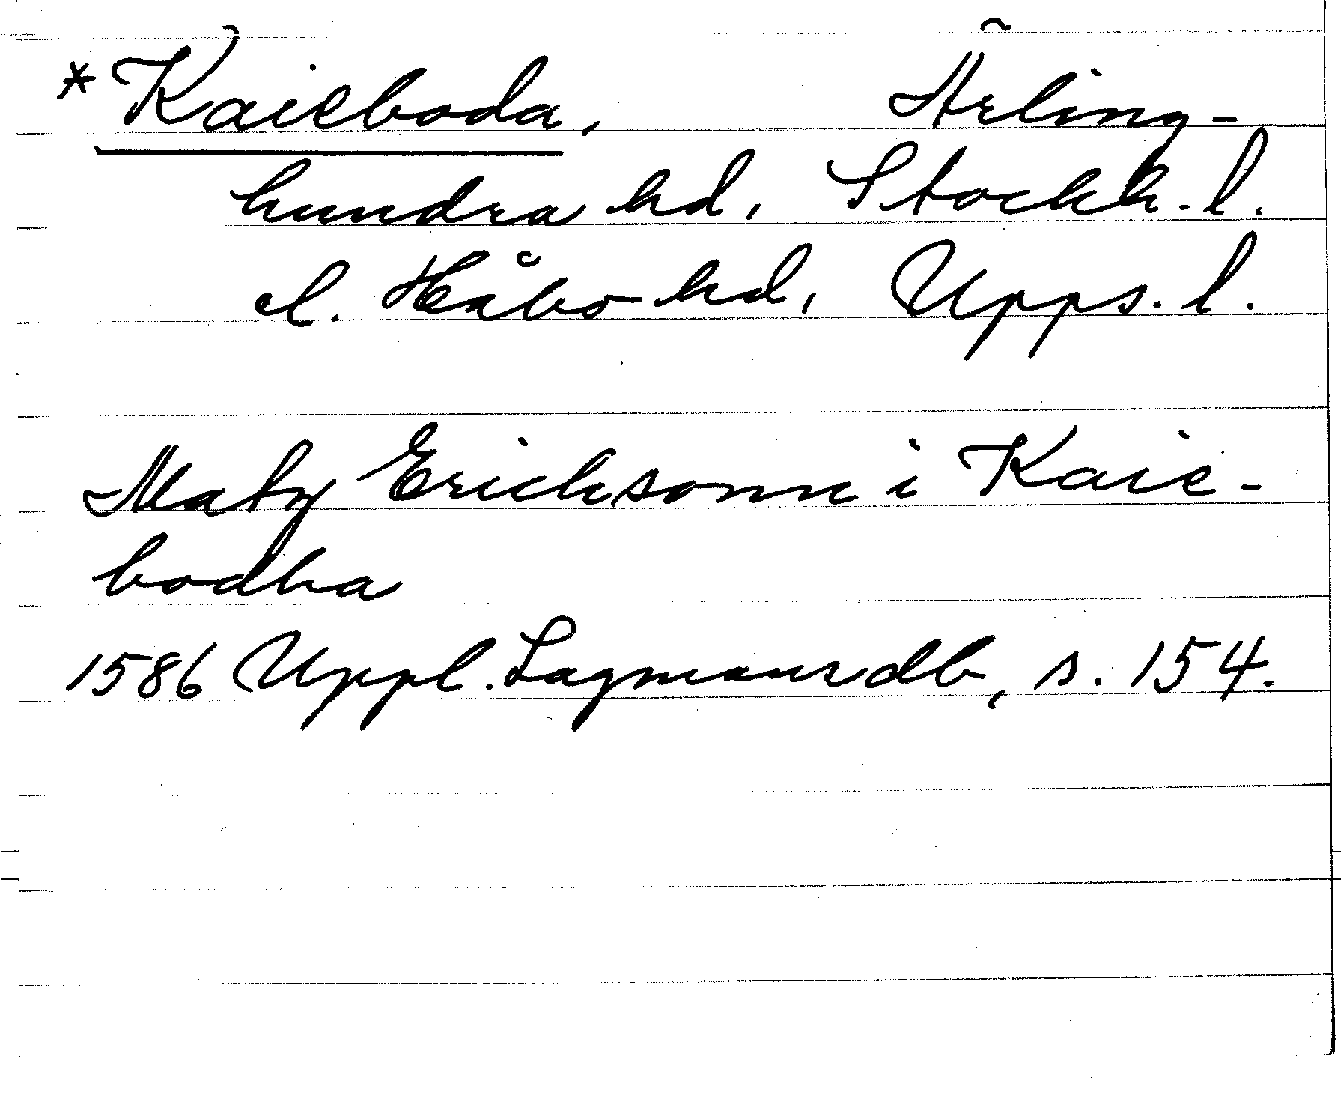 * Kaieboda, Ärling-
hundra hd, Stockh. l.
el. Håbo hd, Upps. l.
Matz Ericksonn i Kaie-
bodha
1586 Uppl. Lagmansdb, s. 154.